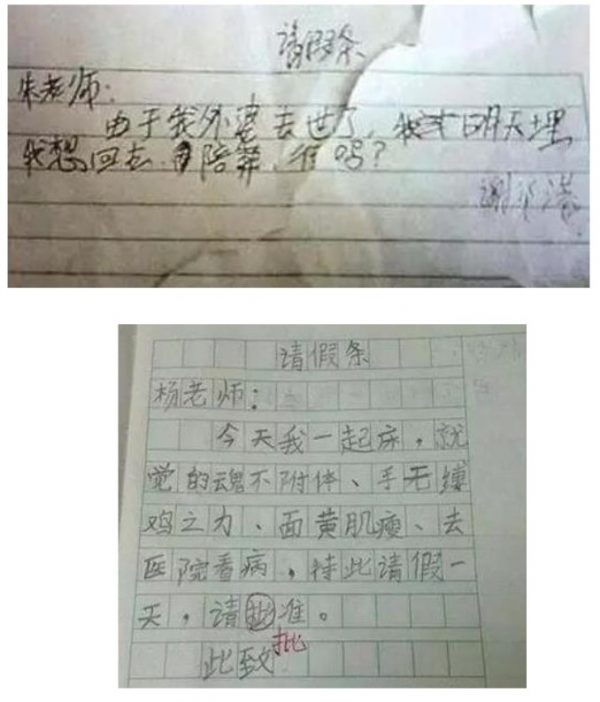 请假条
朱老师:
由于我外婆去世了,我明天埋
我想回去陪葬,行吗?
请假条
杨老师:
今天我一起床,就
觉的魂不附体、手无缚
鸡之力、面黄肌瘦、去
医院看病,特此请假一
天,请批准。
批
此致